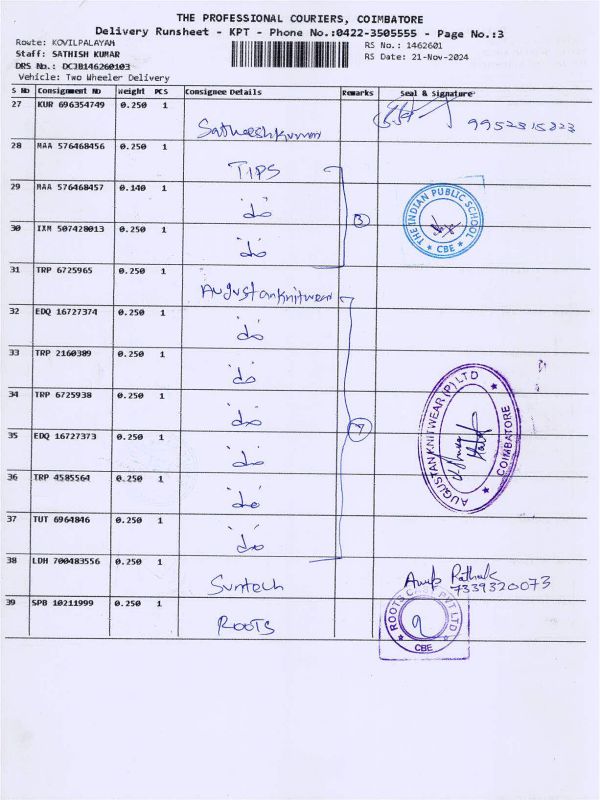 THE PROFESSIONAL COURIERS, COIMBATORE
Delivery Runsheet - KPT - Phone No.:0422-3505555 - Page No.:3
Route: KOVILPALAYAM
RS No.: 1462601
Staff: SATHISH KUMAR
RS Date: 21-Nov-2024
DRS No.: DCJB146260103
Vehicle: Two Wheeler Delivery
S No Consignment No Weight PCS Consignee Details Remarks Seal & Signature
27 KUR 696354749 0.250 1 Satheeshkumar
28 MAA 576468456 0.250 1 TIPS
29 MAA 576468457 0.140 1 do
30 IXM 507428013 0.250 1 do
3
THE INDIAN PUBLIC SCHOOL
CBE
31 TRP 6725965 0.250 1 Augustanknitwear
32 EDQ 16727374 0.250 1 do
33 TRP 2160389 0.250 1 do
34 TRP 6725938 0.250 1 do
35 EDQ 16727373 0.250 1 do
36 TRP 4585564 0.250 1 do
37 TUT 6964846 0.250 1 do
7
AUGUSTAN KNITWEAR (P) LTD
COIMBATORE
38 LDH 700483556 0.250 1 Suntech
7339320073
39 SPB 10211999 0.250 1 ROOTS
ROOTS PVT LTD
CBE